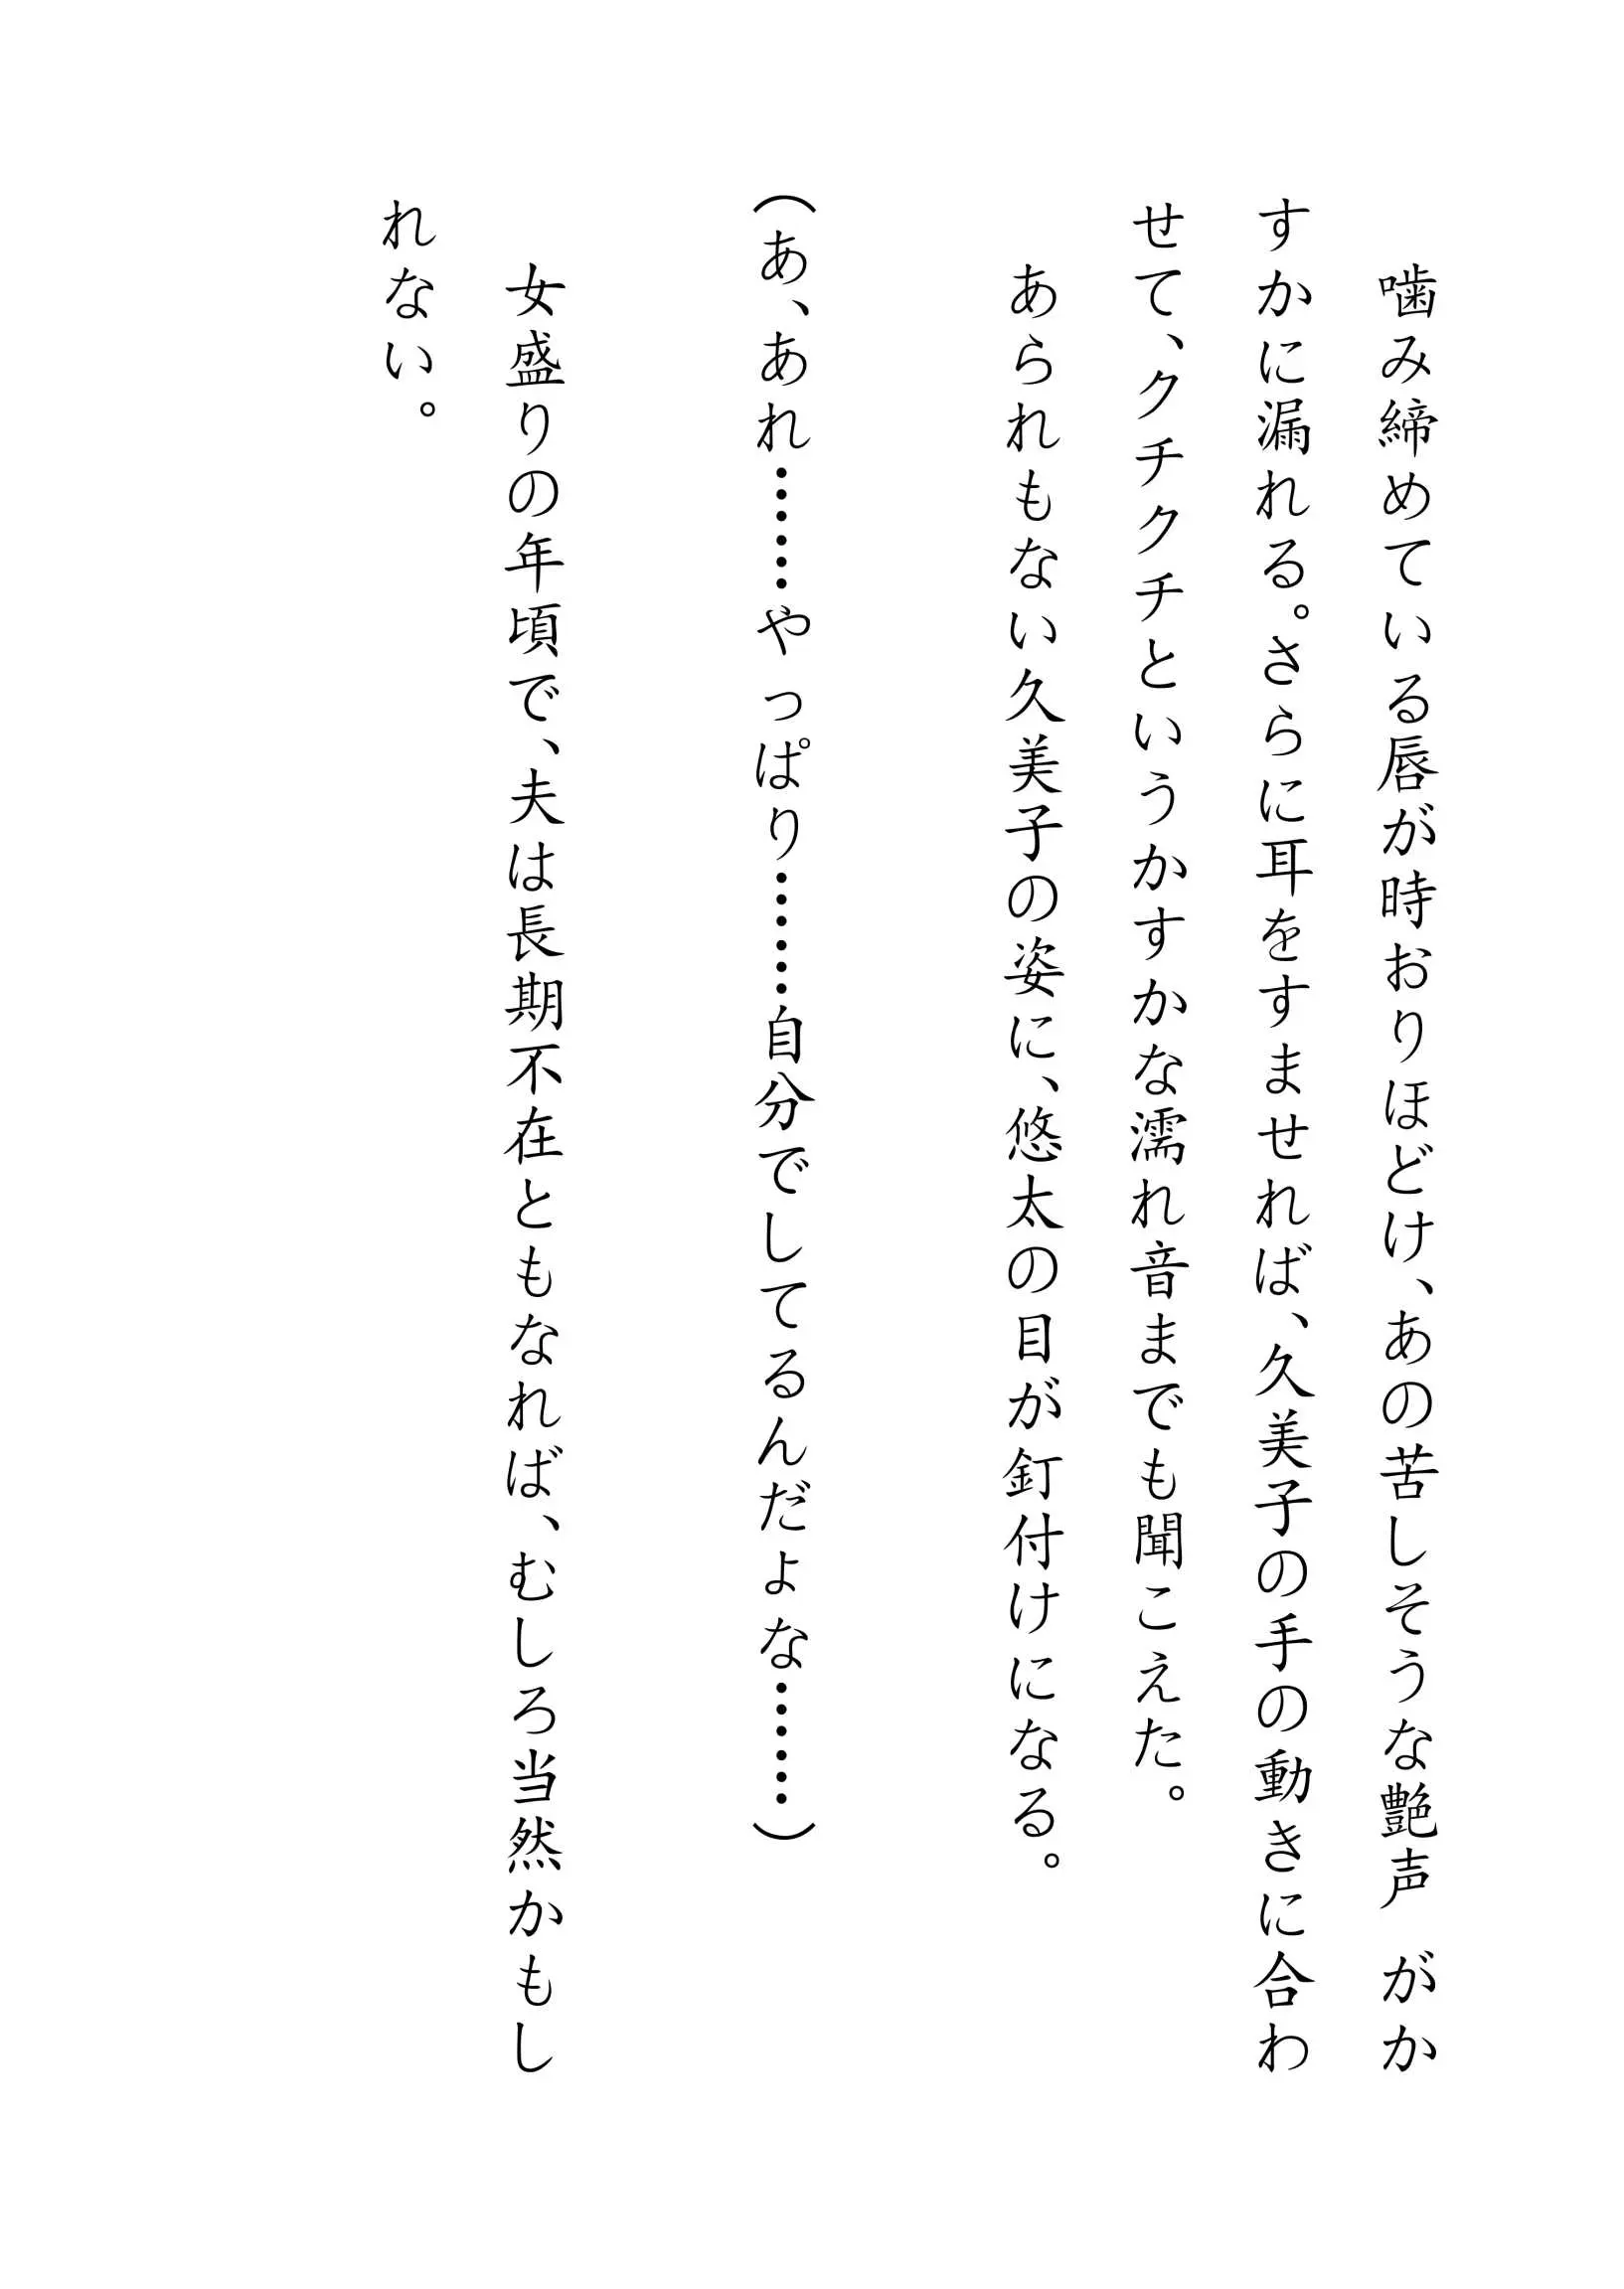 噛み締めている唇が時おりほどけ、あの苦しそうな艶声がか
すかに漏れる。さらに耳をすませれば、久美子の手の動きに合わ
せて、クチクチというかすかな濡れ音までも聞こえた。
あられもない久美子の姿に、悠太の目が釘付けになる。
（あ、あれ……やっぱり……自分でしてるんだよな……）
女盛りの年頃で、夫は長期不在ともなれば、むしろ当然かもし
れない。